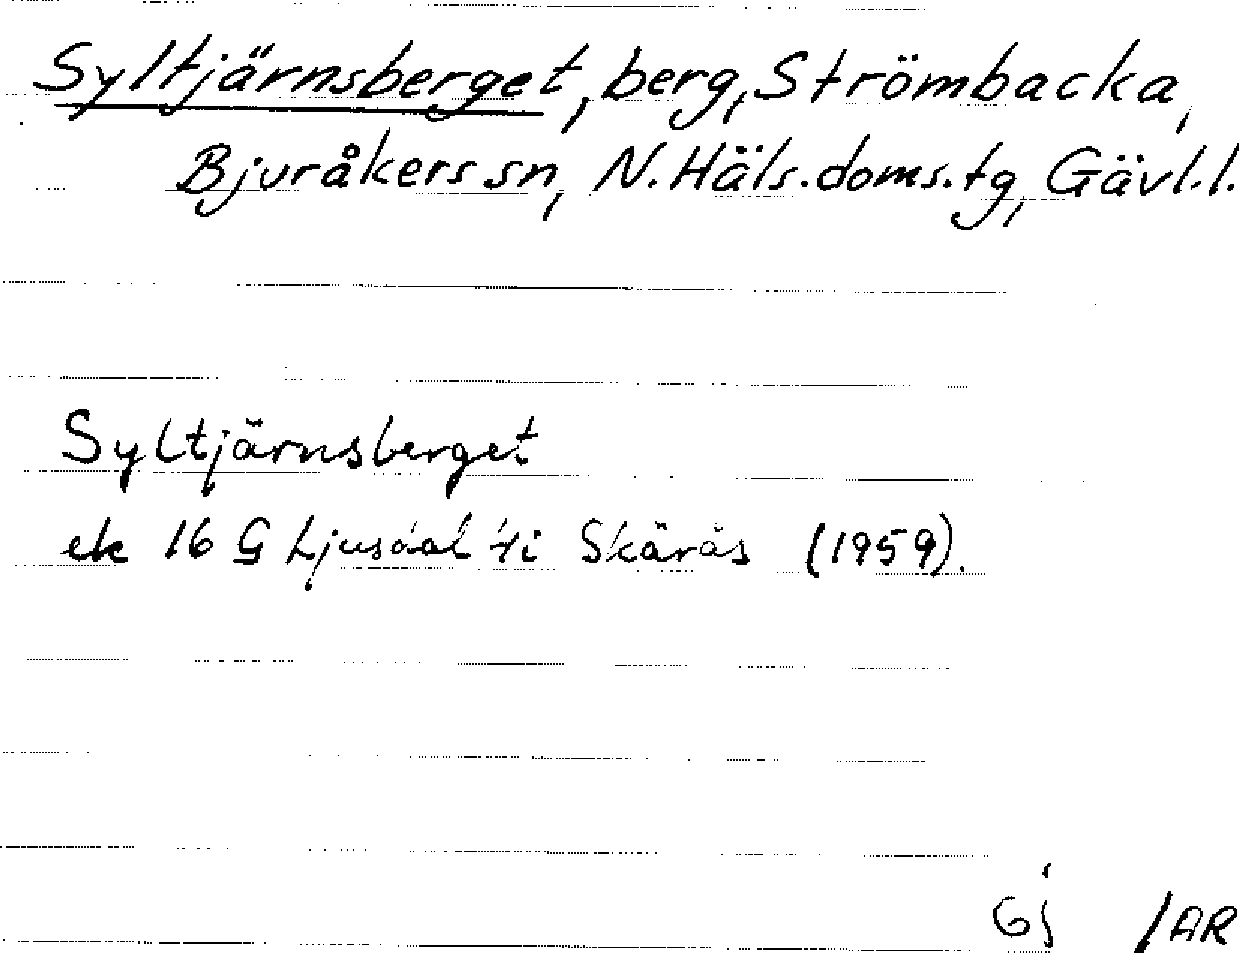 Syltjärnsberget, berg, Strömbacka,
Bjuråkers sn, N. Häls. doms. tg, Gävl. l.
Syltjärnsberget
ek 16 G Ljusdal 4i Skärås (1959).
Gj /AR